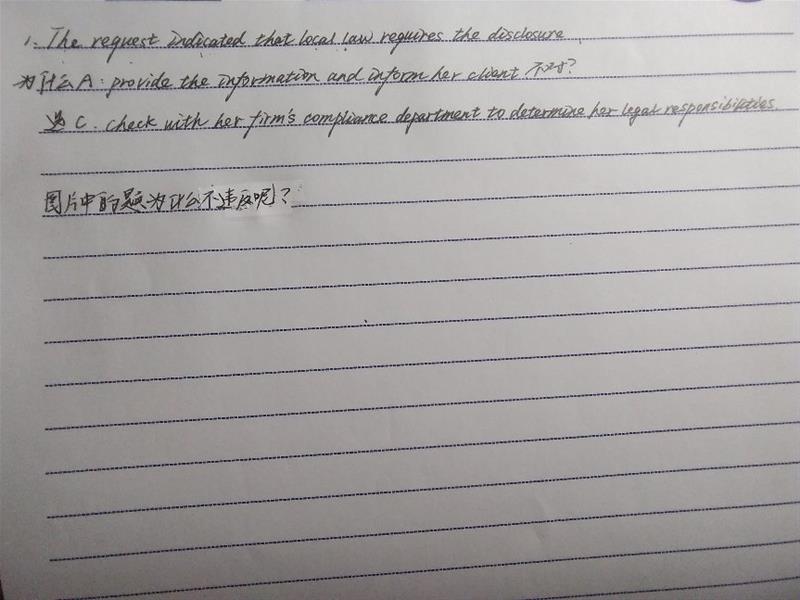 1. The request indicated that local law requires the disclosure.
为什么A. provide the information and inform her client 不对?
选 C. check with her firm's compliance department to determine her legal responsibilities.
图片中的题为什么不违反呢?